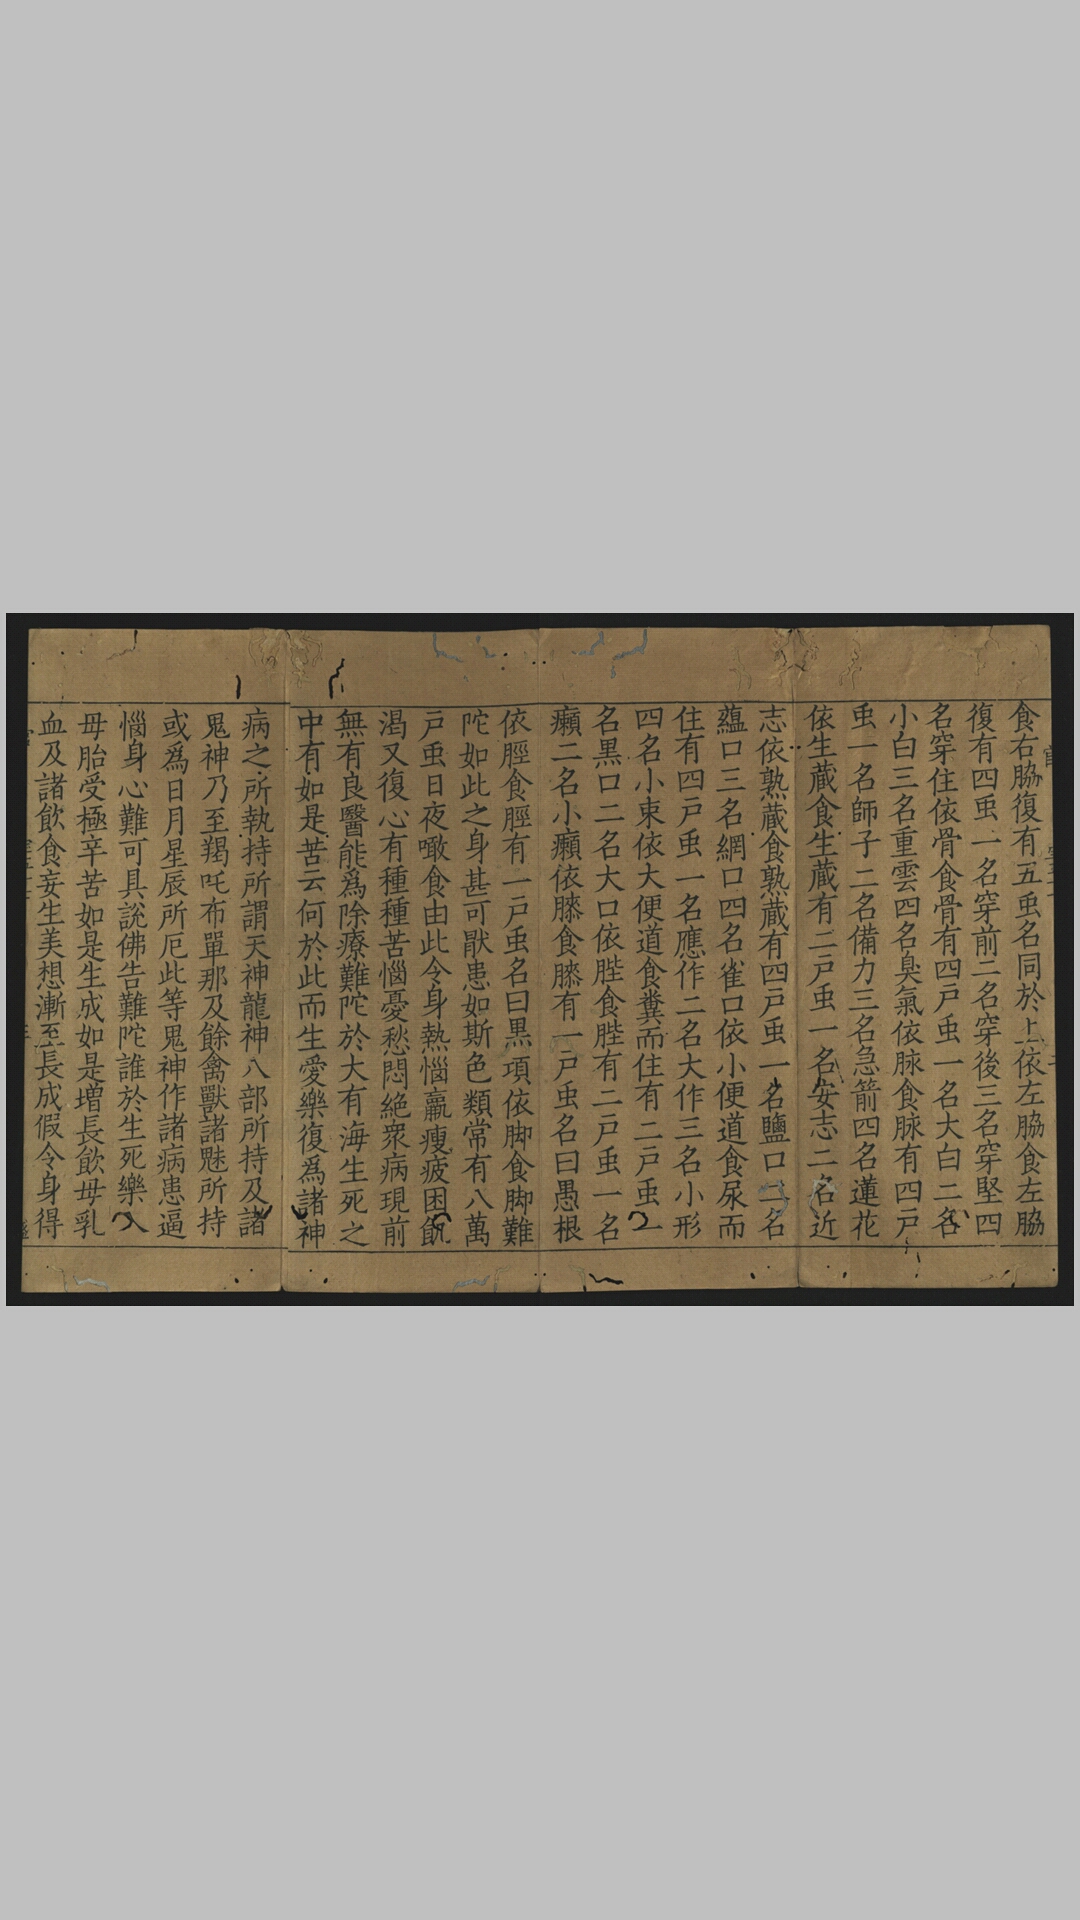 食右脇復有五䖝名同於上依左脇食左脇
復有四䖝一名穿前二名穿後三名穿堅四
名穿住依骨食骨有四戸䖝一名大白二名
小白三名重雲四名臭氣依脉食脉有四戸
䖝一名師子二名備力三名急箭四名蓮花
依生蔵食生蔵有二戸虫一名安志二名近
志依熟蔵食熟蔵有四戸虫一名鹽口二名
蘊口三名網口四名雀口依小便道食尿而
住有四戸䖝一名應作二名大作三名小形
四名小束依大便道食糞而住有二戸䖝一
名黒口二名大口依䏶食䏶有二戸䖝一名
癩二名小癩依膝食膝有一戸虫名曰愚根
依脛食脛有一戸虫名曰黒項依脚食脚難
陀如此之身甚可猒患如斯色類常有八萬
戸䖝日夜噉食由此令身熱惱羸瘦疲困飢
渇又復心有種種苦惱憂愁悶絶衆病現前
無有良醫能爲除療難陀於大有海生死之
中有如是苦云何於此而生愛樂復為諸神
病之所執持所謂天神龍神八部所持及諸
鬼神乃至羯吒布單那及餘禽獸諸魅所持
或爲日月星辰所厄此等鬼神作諸病患逼
惱身心難可具說佛告難陀誰於生死樂入
母胎受極辛苦如是生成如是増長飲母乳
血及諸飲食妄生美想漸至長成假令身得